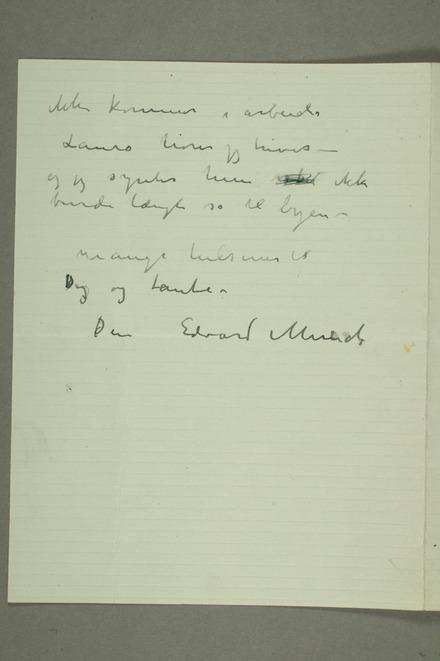 ikke kommer i arbeide
Laura hører jeg trives –
og jeg syntes hun ikke
burde længte so til byen –
mange hilsener til
Dig og tante –
Din Edvard Munch